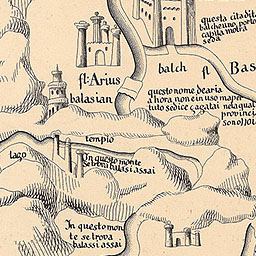 questa cita dita
balch e uno porto
capula moira
seda
fl: Arius
balasian
balch
fl
Bas
questo nome de aria
a hora non e in uso ma per
tuto se dice
provinci
templo
lago
In questo monte
se trova balassi assai
In questo mon
te se trova
balassi assai